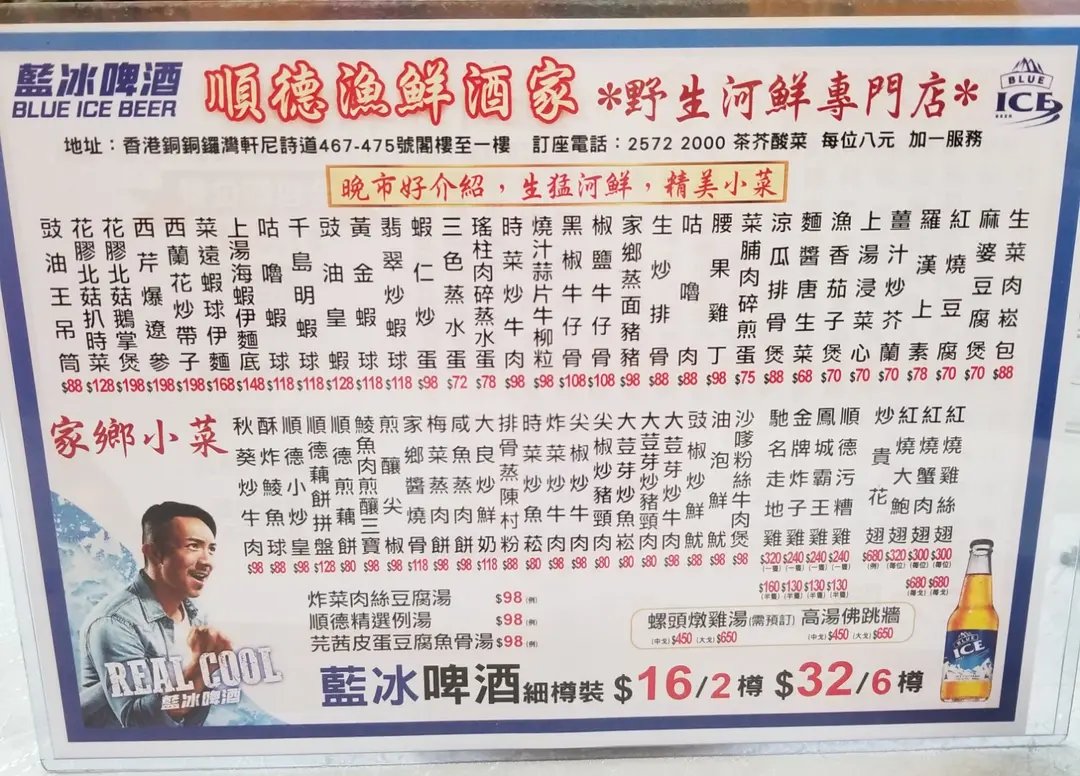 藍冰啤酒
BLUE ICE BEER
順德漁鮮酒家
*野生河鮮專門店*
BLUE
ICE
BEER
地址：香港銅銅鑼灣軒尼詩道467-475號閣樓至一樓 訂座電話：2572 2000 茶芥酸菜 每位八元 加一服務
晚市好介紹，生猛河鮮，精美小菜
生菜肉崧包 $88
麻婆豆腐煲 $70
紅燒豆腐 $70
羅漢上素 $78
薑汁炒芥蘭 $70
上湯浸菜心 $70
漁香茄子煲 $70
麵醬唐生菜 $68
涼瓜排骨煲 $88
菜脯肉碎煎蛋 $75
腰果雞丁 $98
咕嚕肉 $88
生炒排骨 $88
家鄉蒸面豬豬 $98
椒鹽牛仔骨 $108
黑椒牛仔骨 $108
燒汁蒜片牛柳粒 $98
時菜炒牛肉 $98
瑤柱肉碎蒸水蛋 $78
三色蒸水蛋 $72
蝦仁炒蛋 $98
翡翠炒蝦球 $118
黃金蝦球 $118
豉油皇蝦 $128
千島明蝦球 $118
咕嚕蝦球 $118
上湯海蝦伊麵底 $148
菜遠蝦球伊麵 $168
西蘭花炒帶子 $198
西芹爆遼參 $198
花膠北菇鵝掌煲 $198
花膠北菇扒時菜 $128
豉油王吊筒 $88
家鄉小菜
紅燒雞絲翅 $300 (每位) $680 (每戈)
紅燒蟹肉翅 $300 (每位) $680 (每戈)
紅燒大鮑翅 $320 (每位)
炒貴花翅 $680 (例)
順德污糟雞 $240 (一隻) $130 (半隻)
鳳城霸王雞 $240 (一隻) $130 (半隻)
金牌炸子雞 $240 (一隻) $130 (半隻)
馳名走地雞 $320 (一隻) $160 (半隻)
沙嗲粉絲牛肉煲 $98
油泡鮮魷 $98
豉椒炒鮮魷 $88
大荳芽炒牛肉 $98
大荳芽炒豬頸肉 $80
大荳芽炒魚崧 $80
尖椒炒豬頸肉 $80
尖椒炒牛肉 $98
炸菜炒牛肉 $98
時菜炒魚菘 $80
排骨蒸陳村粉 $88
大良炒鮮奶 $118
咸魚蒸肉餅 $98
梅菜蒸肉餅 $98
家鄉醬燒骨 $118
煎釀尖椒 $98
鯪魚肉煎釀三寶 $98
順德煎藕餅 $80
順德藕餅拼盤 $128
順德小炒皇 $98
酥炸鯪魚球 $88
秋葵炒牛肉 $98
炸菜肉絲豆腐湯 $98 (例)
順德精選例湯 $98 (例)
芫茜皮蛋豆腐魚骨湯 $98 (例)
螺頭燉雞湯(需預訂) 高湯佛跳牆
(中戈) $450 (大戈) $650 (中戈) $450 (大戈) $650
REAL COOL
藍冰啤酒
藍冰啤酒細樽裝 $16/2樽 $32/6樽
BLUE
ICE